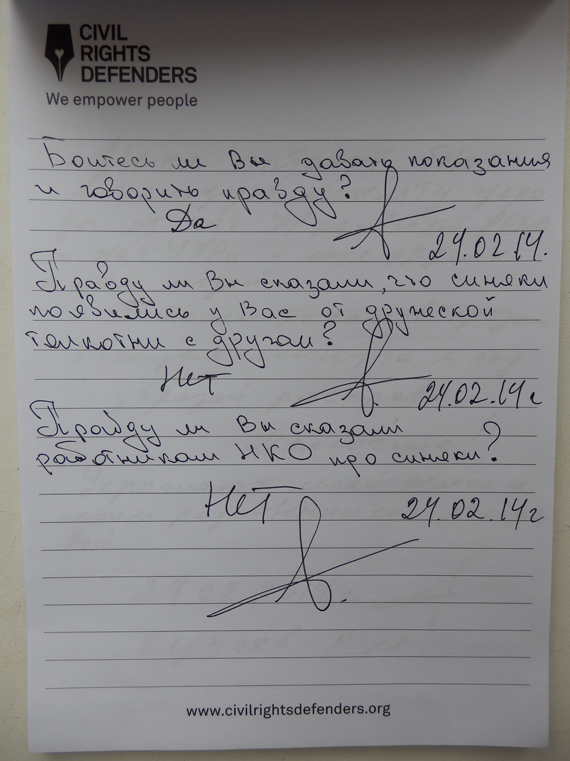 CIVIL
RIGHTS
DEFENDERS
We empower people
Боитесь ли Вы давать показания
и говорить правду?
Да
24.02.14.
Правду ли Вы сказали, что синяки
появились у Вас от дружеской
толкотни с другом?
Нет
24.02.14г
Правду ли Вы сказали
работникам НКО про синяки?
Нет
24.02.14г
www.civilrightsdefenders.org